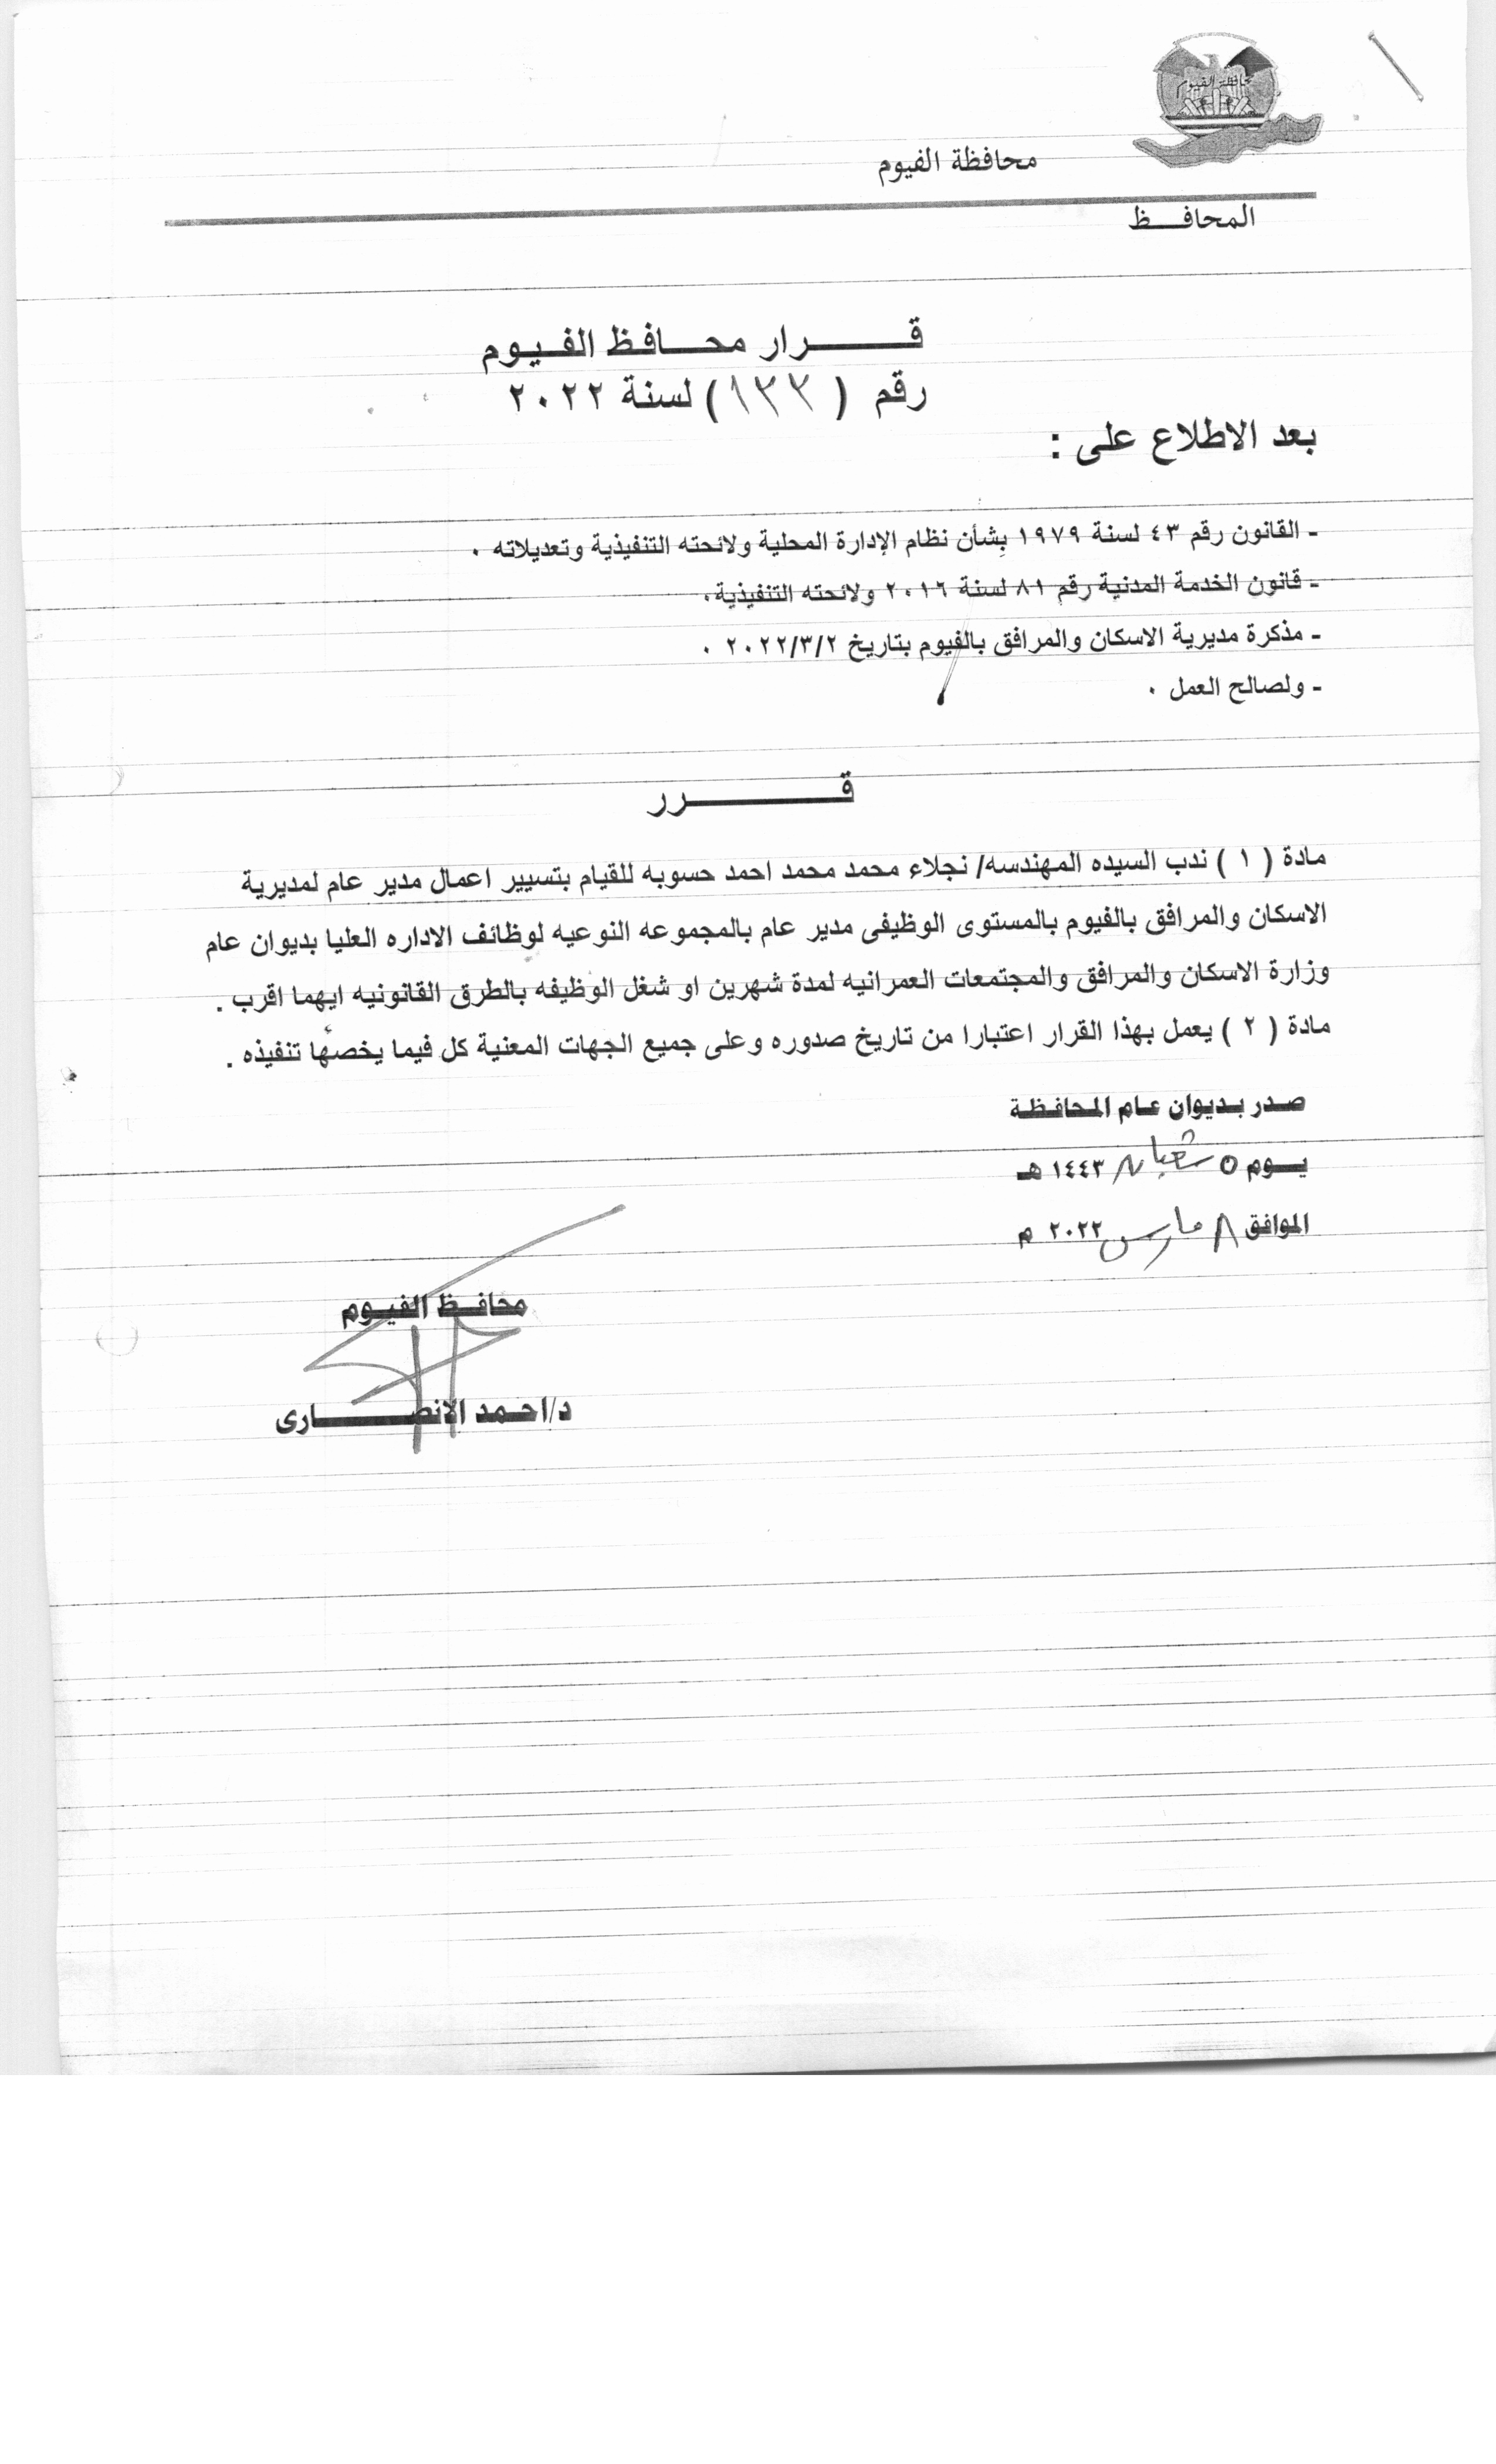 محافظة الفيوم
محافظة الفيوم
المحافـــظ
قـــــــرار محـــافظ الفـيـوم
رقم ( ١٣٣ ) لسنة ٢٠٢٢
بعد الاطلاع على :
ـ القانون رقم ٤٣ لسنة ١٩٧٩ بشأن نظام الإدارة المحلية ولائحته التنفيذية وتعديلاته ٠
ـ قانون الخدمة المدنية رقم ٨١ لسنة ٢٠١٦ ولائحته التنفيذية٠
ـ مذكرة مديرية الاسكان والمرافق بالفيوم بتاريخ ٢٠٢٢/٣/٢ ٠
ـ ولصالح العمل ٠
قــــــــــرر
مادة ( ١ ) ندب السيده المهندسه/ نجلاء محمد محمد احمد حسوبه للقيام بتسيير اعمال مدير عام لمديرية
الاسكان والمرافق بالفيوم بالمستوى الوظيفى مدير عام بالمجموعه النوعيه لوظائف الاداره العليا بديوان عام
وزارة الاسكان والمرافق والمجتمعات العمرانيه لمدة شهرين او شغل الوظيفه بالطرق القانونيه ايهما اقرب .
مادة ( ٢ ) يعمل بهذا القرار اعتبارا من تاريخ صدوره وعلى جميع الجهات المعنية كل فيما يخصها تنفيذه .
صدر بديوان عام المحافظة
يـــوم ٥ شعبان ١٤٤٣ هـ
الموافق ٨ مارس ٢٠٢٢ م
محافـظ الفيـوم
د/احـمـد الانصــــــارى